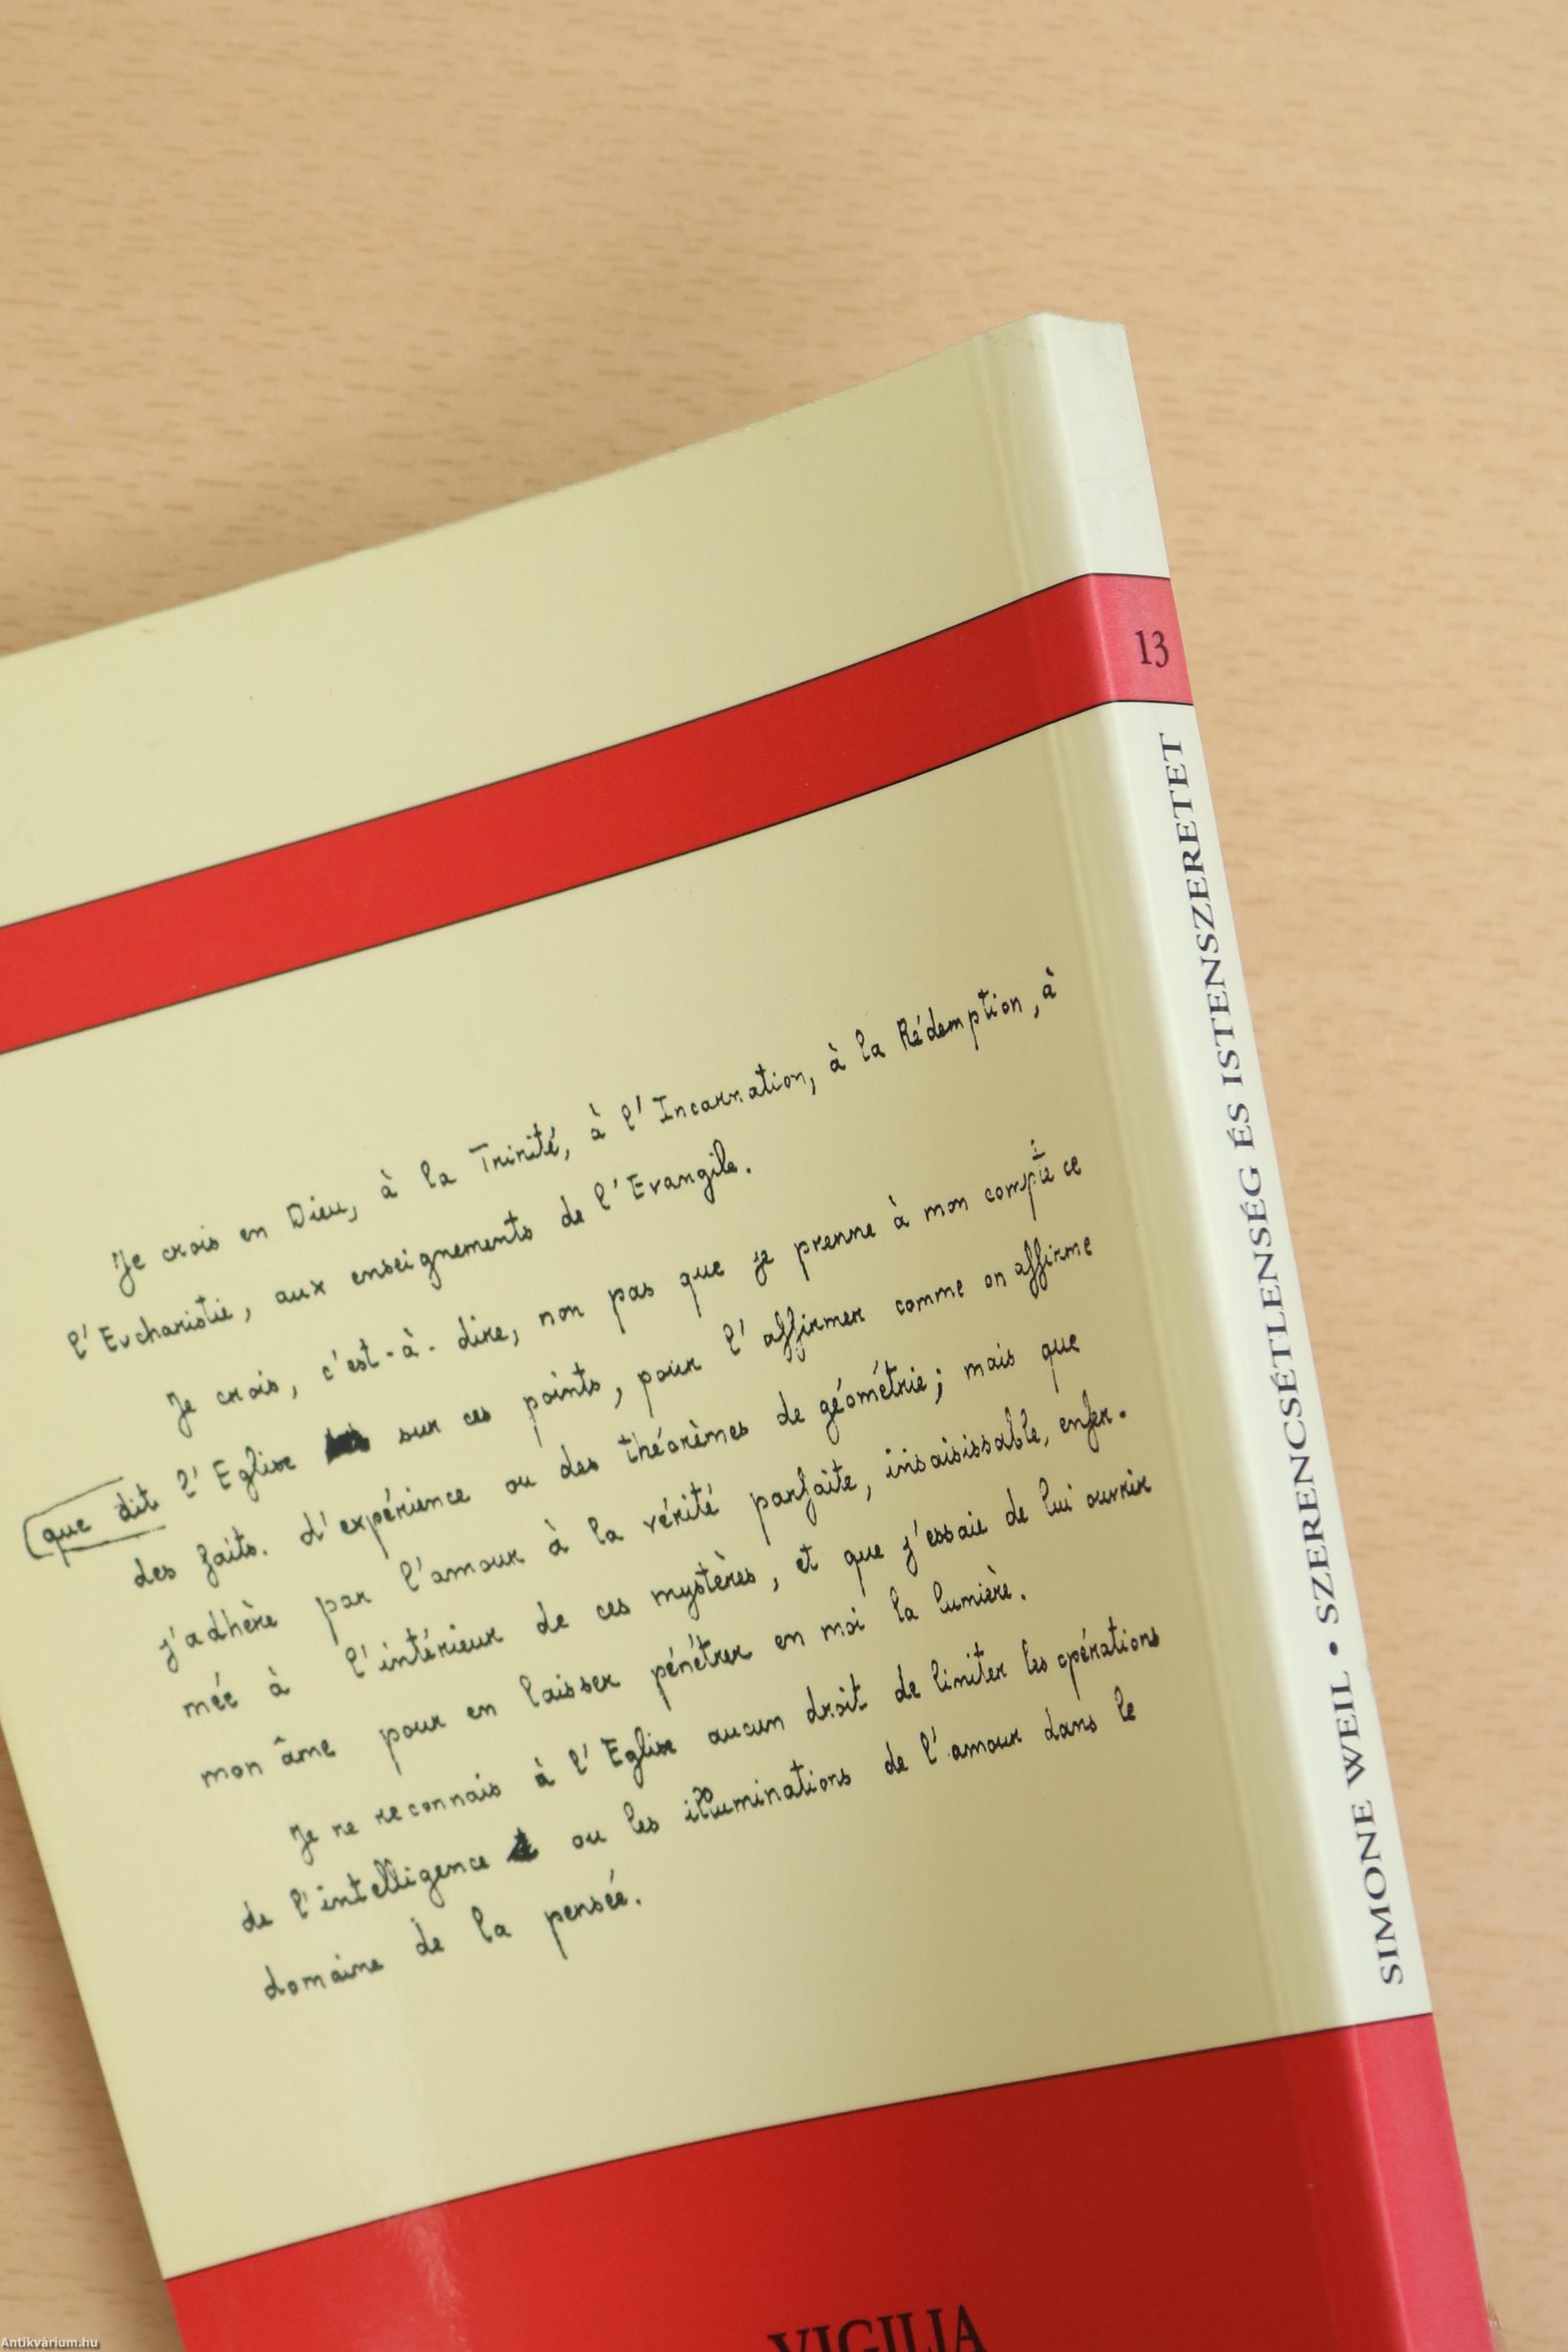 13
SIMONE WEIL • SZERENCSÉTLENSÉG ÉS ISTENSZERETET
Je crois en Dieu, à la Trinité, à l'Incarnation, à la Rédemption, à
l'Eucharistie, aux enseignements de l'Evangile.
Je crois, c'est-à-dire, non pas que je prenne à mon compte ce
que dit l'Eglise sur ces points, pour l'affirmer comme on affirme
des faits d'expérience ou des théorèmes de géométrie; mais que
j'adhère par l'amour à la vérité parfaite, insaisissable, enfer-
mée à l'intérieur de ces mystères, et que j'essaie de lui ouvrir
mon âme pour en laisser pénétrer en moi la lumière.
Je ne reconnais à l'Eglise aucun droit de limiter les opérations
de l'intelligence ou les illuminations de l'amour dans le
domaine de la pensée.
VIGILIA
Antikvárium.hu